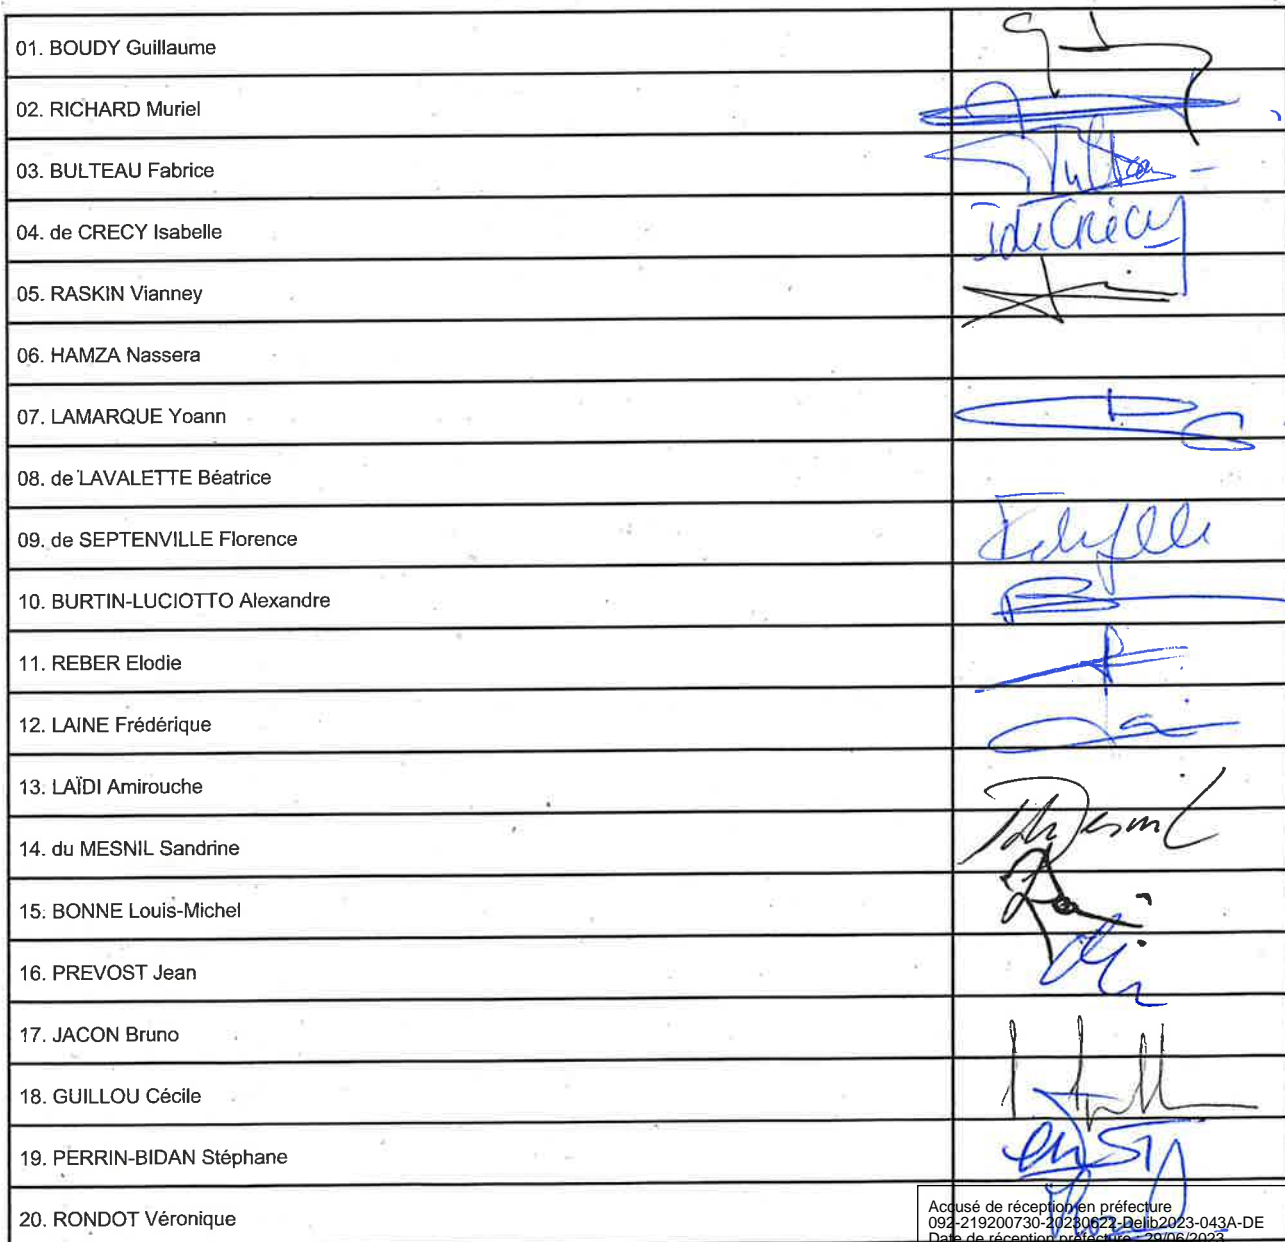 01. BOUDY Guillaume
02. RICHARD Muriel
03. BULTEAU Fabrice
04. de CRECY Isabelle
IdeCrécy
05. RASKIN Vianney
06. HAMZA Nassera
07. LAMARQUE Yoann
08. de LAVALETTE Béatrice
09. de SEPTENVILLE Florence
10. BURTIN-LUCIOTTO Alexandre
11. REBER Elodie
12. LAINE Frédérique
13. LAÏDI Amirouche
14. du MESNIL Sandrine
15. BONNE Louis-Michel
16. PREVOST Jean
17. JACON Bruno
18. GUILLOU Cécile
19. PERRIN-BIDAN Stéphane
20. RONDOT Véronique
Accusé de réception en préfecture
092-219200730-20230622-Delib2023-043A-DE
Date de réception préfecture : 29/06/2023